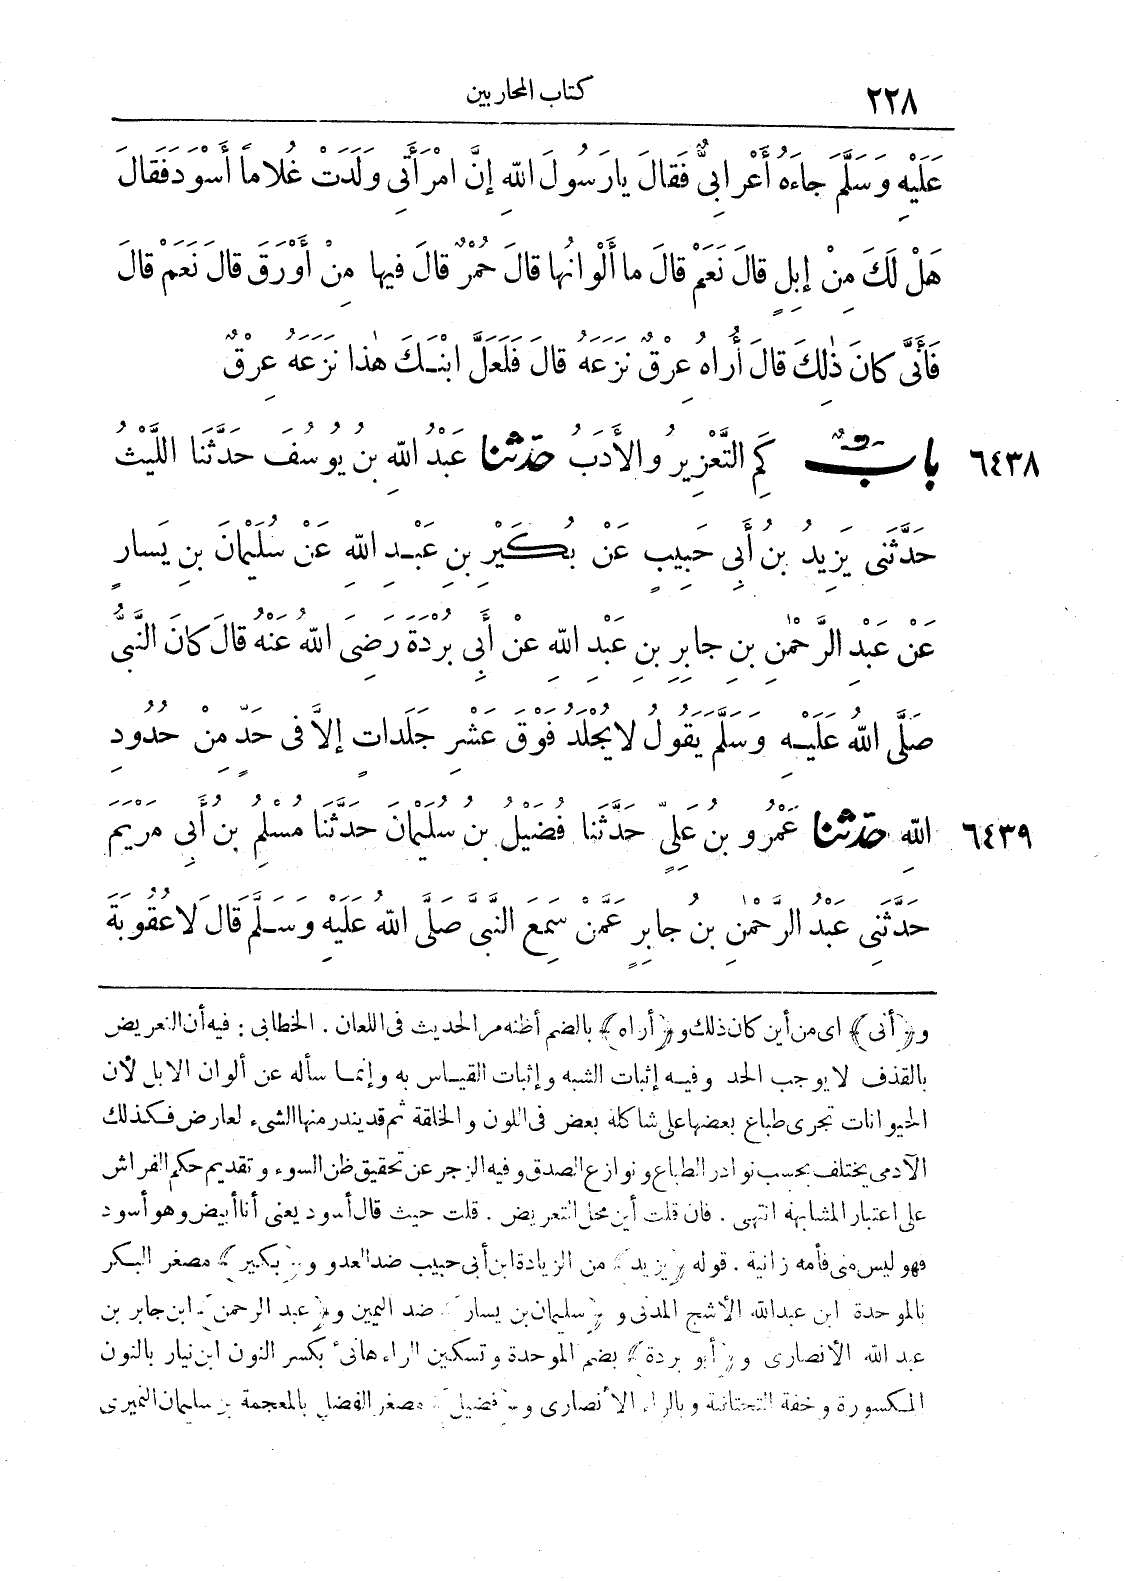 ٢٢٨ كتاب المحاربين
عَلَيْهِ وَسَلَّمَ جاءَهُ أَعْرابِىٌّ فَقالَ يارَسُولَ اللهِ إِنَّ امْرَأَتِى وَلَدَتْ غُلاماً أَسْوَدَ فَقالَ
هَلْ لَكَ مِنْ إِبِلٍ قالَ نَعَمْ قالَ ما أَلْوانُها قالَ حُمْرٌ قالَ فيها مِنْ أَوْرَقَ قالَ نَعَمْ قالَ
فَأَنَّى كانَ ذٰلِكَ قالَ أُراهُ عِرْقٌ نَزَعَهُ قالَ فَلَعَلَّ ابْنَكَ هٰذا نَزَعَهُ عِرْقٌ
٦٤٣٨ بابٌ كَمِ التَّعْزِيرُ والأَدَبُ حَدَّثَنا عَبْدُ اللهِ بنُ يُوسُفَ حَدَّثَنا اللَّيْثُ
حَدَّثَنى يَزِيدُ بنُ أَبِى حَبِيبٍ عَنْ بُكَيْرِ بنِ عَبْدِ اللهِ عَنْ سُلَيْمانَ بنِ يَسارٍ
عَنْ عَبْدِ الرَّحْمٰنِ بنِ جابِرِ بنِ عَبْدِ اللهِ عَنْ أَبِى بُرْدَةَ رَضِىَ اللهُ عَنْهُ قالَ كانَ النَّبِىُّ
صَلَّى اللهُ عَلَيْهِ وَسَلَّمَ يَقُولُ لايُجْلَدُ فَوْقَ عَشْرِ جَلَداتٍ إلاَّ فى حَدٍّ مِنْ حُدُودِ
٦٤٣٩ اللهِ حَدَّثَنا عَمْرُو بنُ عَلِىٍّ حَدَّثَنا فُضَيْلُ بنُ سُلَيْمانَ حَدَّثَنا مُسْلِمُ بنُ أَبِى مَرْيَمَ
حَدَّثَنِى عَبْدُ الرَّحْمٰنِ بنُ جابِرٍ عَمَّنْ سَمِعَ النَّبِىَّ صَلَّى اللهُ عَلَيْهِ وَسَلَّمَ قَالَ لاعُقُوبَةَ
و﴿أنى﴾ اى من أين كان ذلك و﴿أراه﴾ بالضم أظنه مر الحديث فى اللعان . الخطابى : فيه أن التعريض
بالقذف لا يوجب الحد وفيه إثبات الشبه وإثبات القياس به وإنما سأله عن ألوان الابل لأن
الحيوانات تجرى طباع بعضها على شاكلة بعض فى اللون و الخلقة ثم قد يندر منها الشىء لعارض فكذلك
الآدمى يختلف بحسب نوادر الطباع و نوازع الصدق و فيه الزجر عن تحقيق ظن السوء و تقديم حكم الفراش
على اعتبار المشابهة انتهى . فان قلت أين محل التعريض . قلت حيث قال أسود يعنى أنا أبيض وهو أسود
فهو ليس منى فأمه زانية . قوله ﴿يزيد﴾ من الزيادة ابن أبى حبيب ضد العدو و﴿بكير﴾ مصغر البكر
بالموحدة ابن عبدالله الأشج المدنى و ﴿سليمان بن يسار﴾ ضد اليمين و﴿عبد الرحمن﴾ ابن جابر بن
عبد الله الأنصارى و ﴿أبو بردة﴾ بضم الموحدة وتسكين الراء هانىء بكسر النون ابن نيار بالنون
المكسورة و خفة التحتانية وبالراء الأنصارى و﴿فضيل﴾ مصغر الفضل بالمعجمة بن سليمان النميرى